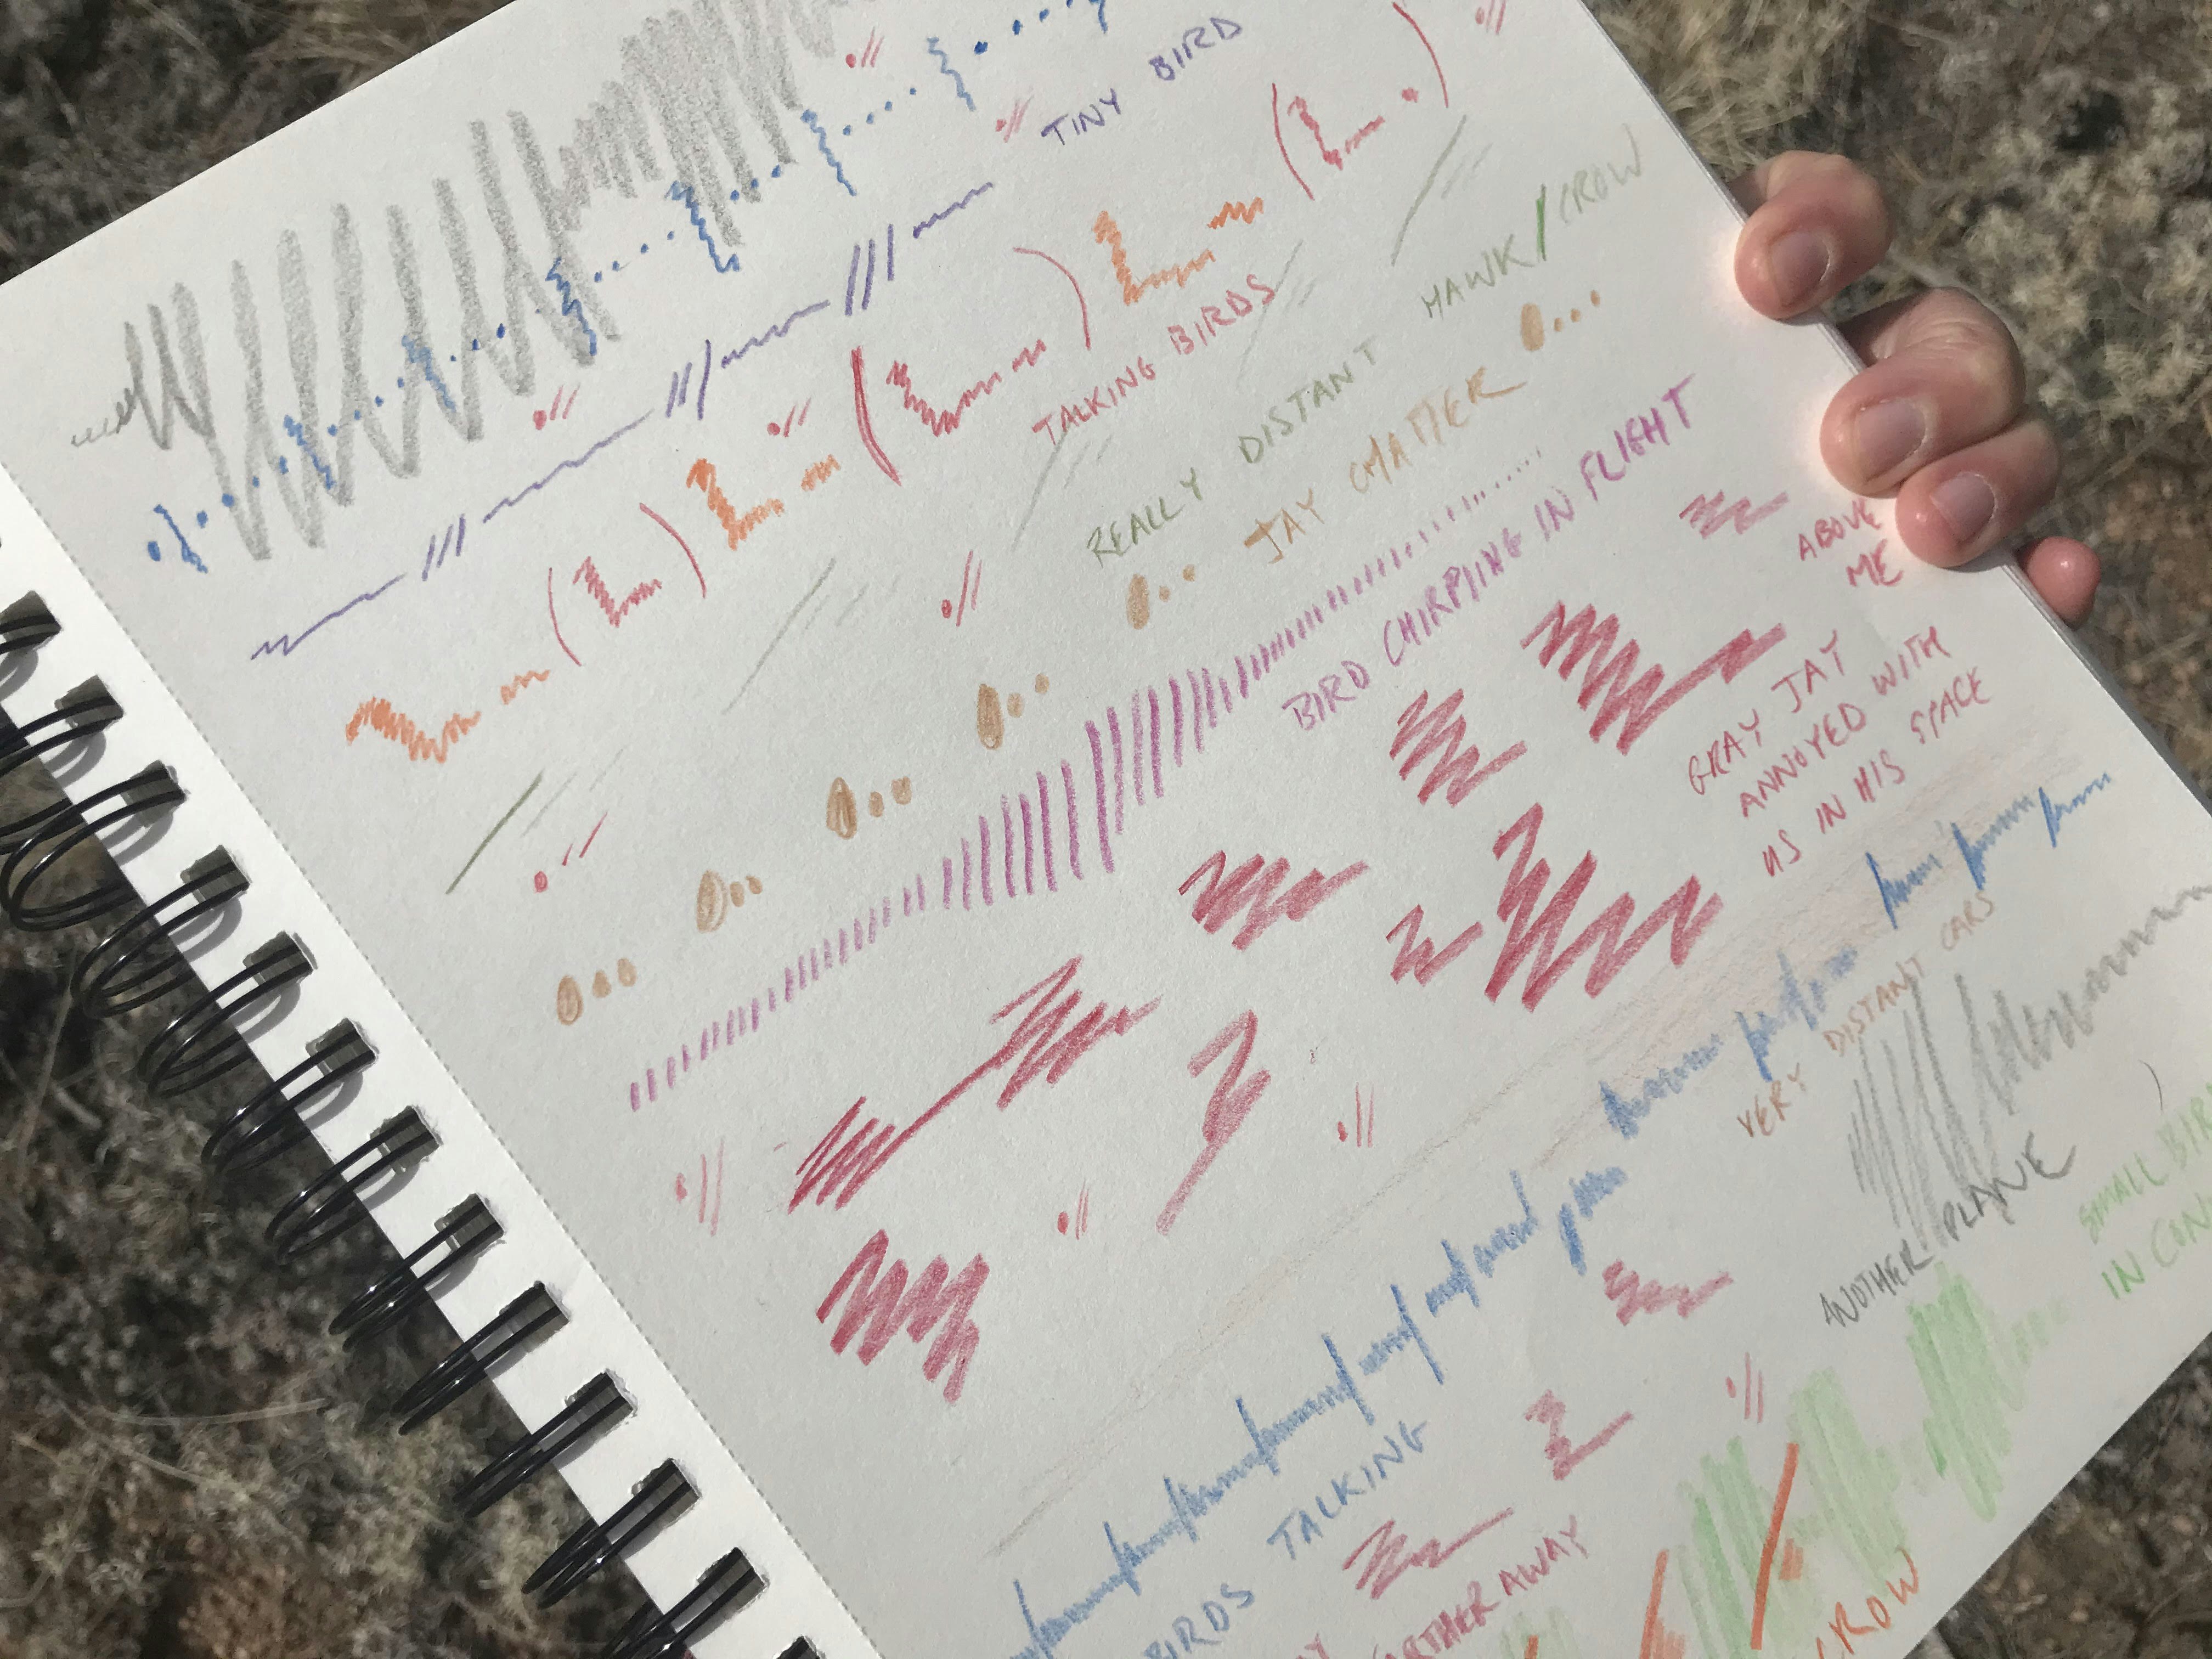 TINY BIRD
TALKING BIRDS
HAWK/CROW
REALLY DISTANT
JAY CHATTER
BIRD CHIRPING IN FLIGHT
ABOVE
ME
GRAY JAY
ANNOYED WITH
US IN HIS SPACE
VERY DISTANT CARS
ANOTHER PLANE
SMALL
IN
BIRDS TALKING
AWAY
CROW